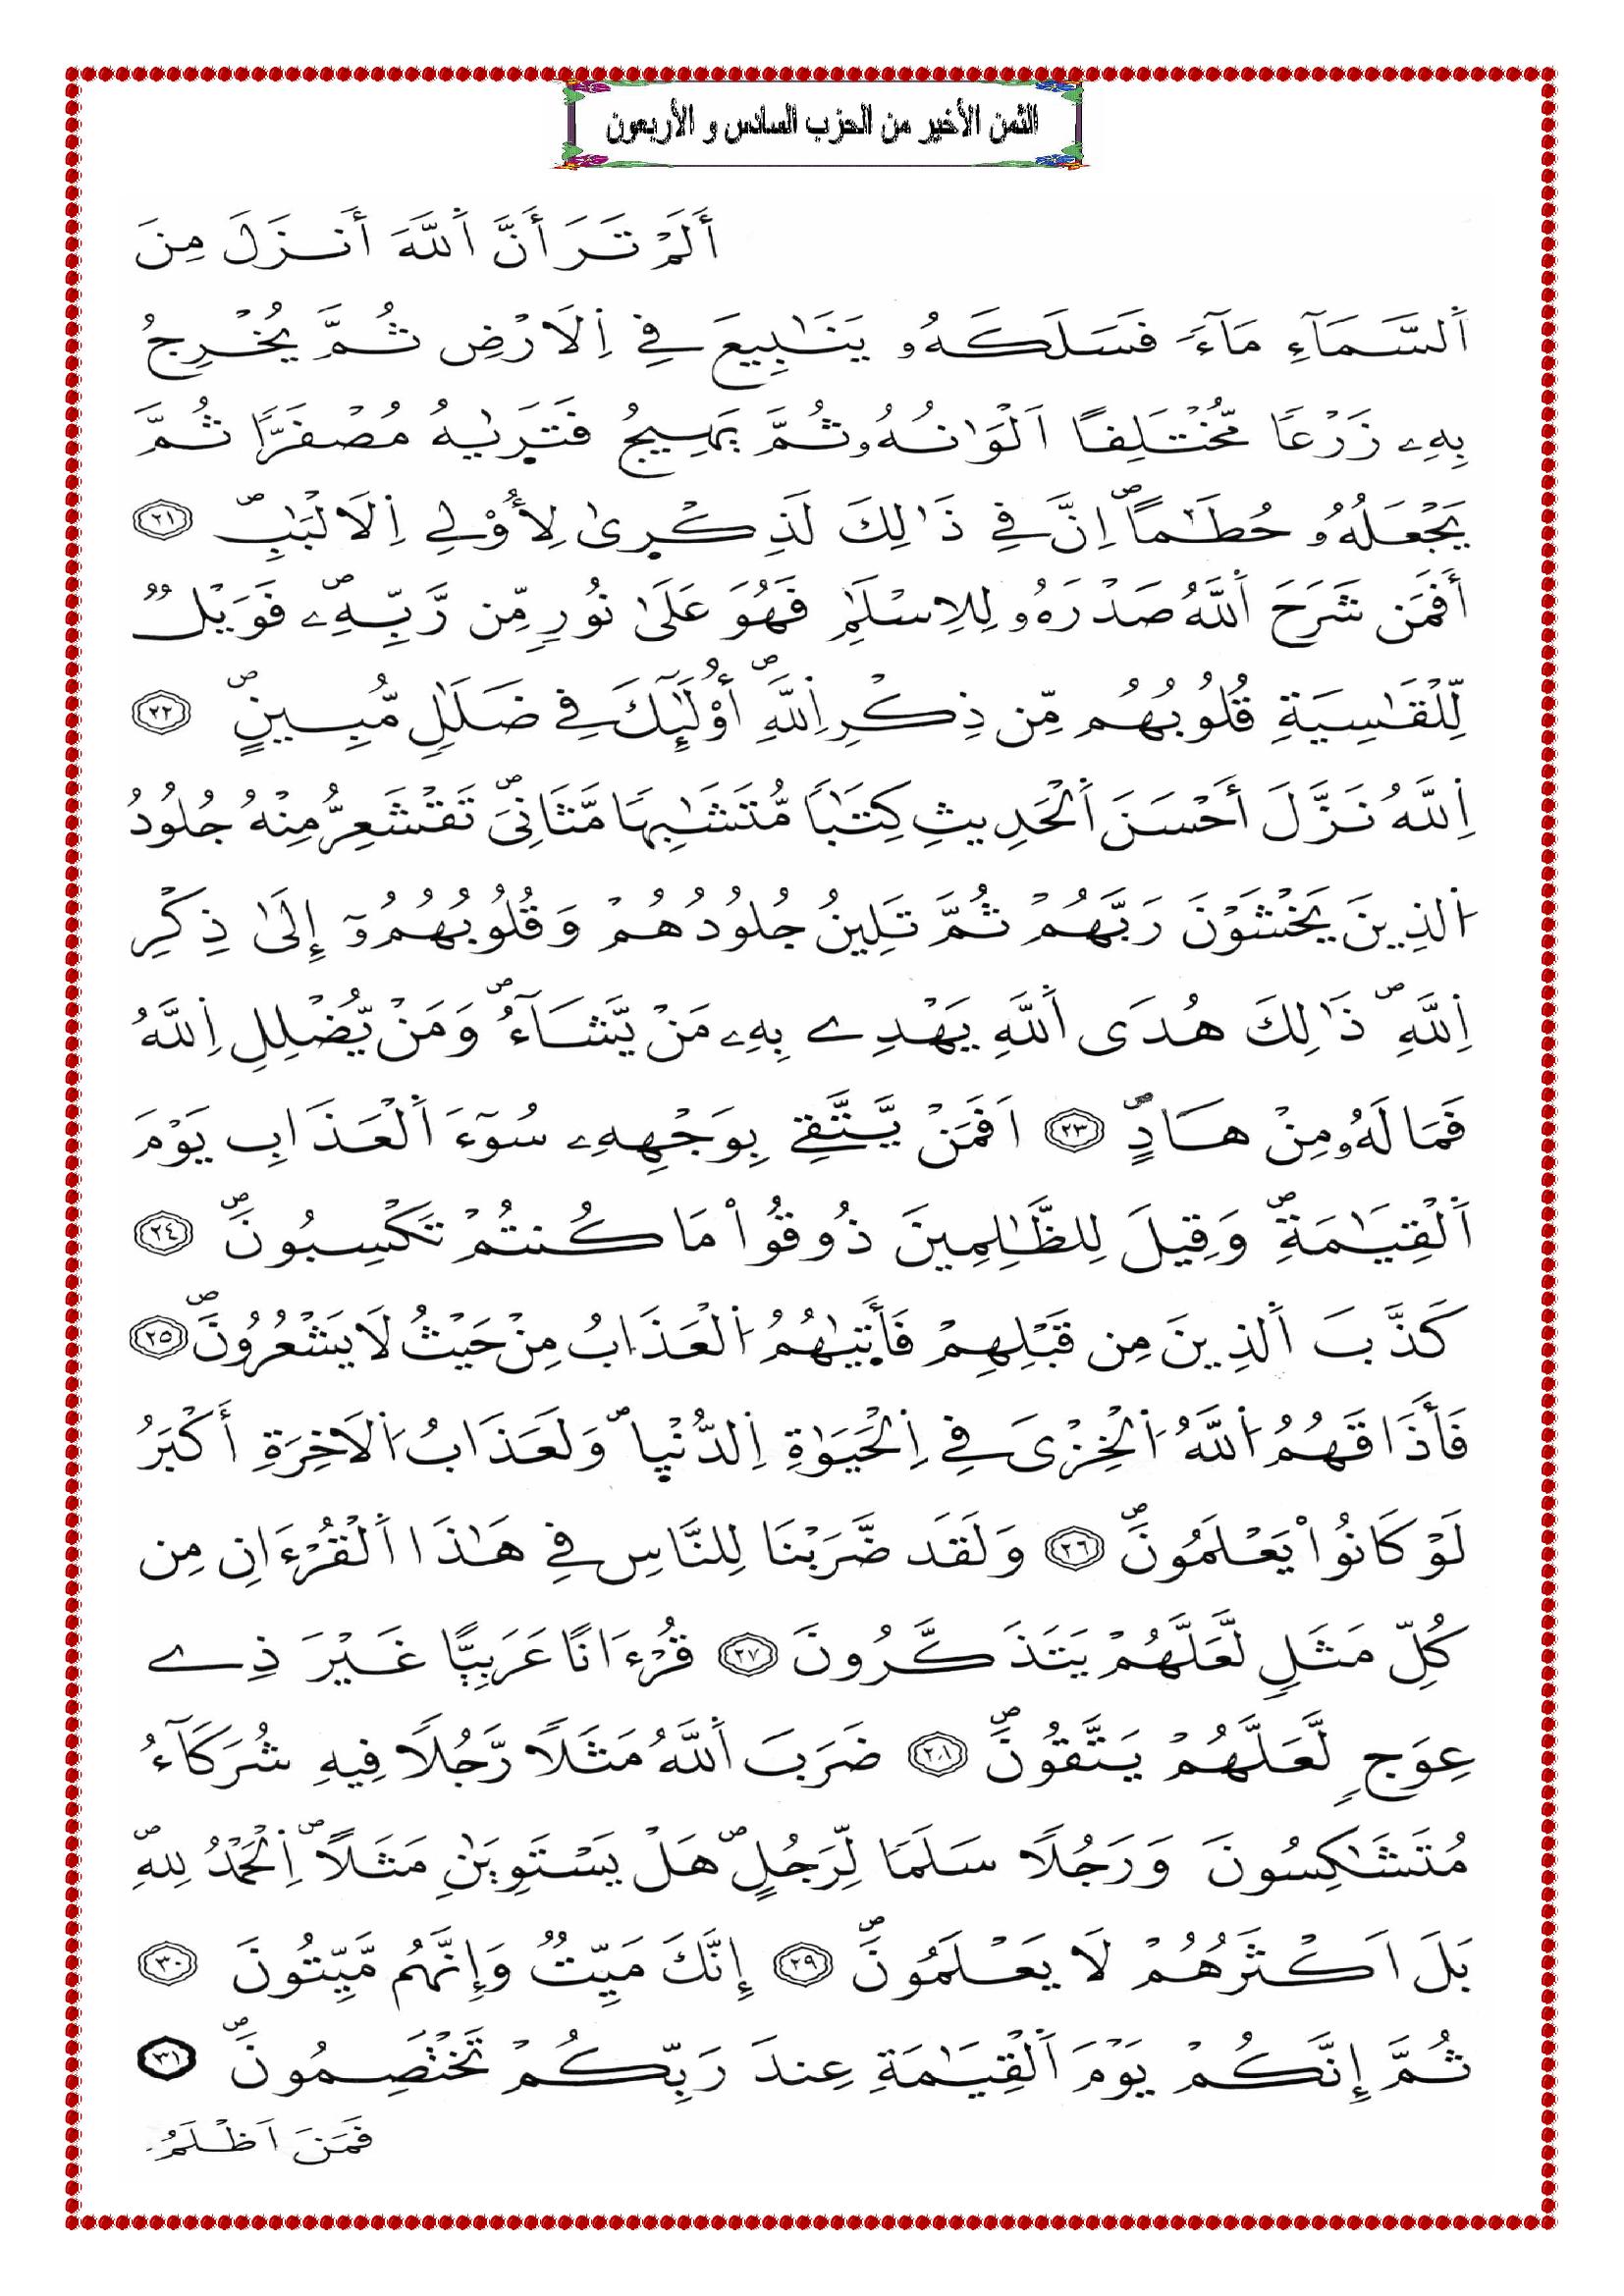 الثمن الأخير من الحزب السادس و الأربعون
أَلَمْ تَرَ أَنَّ اَللَّهَ أَنزَلَ مِنَ
اَلسَّمَآءِ مَآءٗ فَسَلَكَهُۥ يَنَٰبِيعَ فِي اِلَارْضِ ثُمَّ يُخْرِجُ
بِهِۦ زَرْعاٗ مُّخْتَلِفاً اَلْوَٰنُهُۥ ثُمَّ يَهِيجُ فَتَرَيٰهُ مُصْفَرّاٗ ثُمَّ
يَجْعَلُهُۥ حُطَٰماًۖ اِنَّ فِي ذَٰلِكَ لَذِكْر۪يٰ لِأُوْلِي اِلَالْبَٰبِۖ ٢١
أَفَمَن شَرَحَ اَللَّهُ صَدْرَهُۥ لِلِاسْلَٰمِ فَهُوَ عَلَىٰ نُورٖ مِّن رَّبِّهِۦۖ فَوَيْلٞ
لِّلْقَٰسِيَةِ قُلُوبُهُم مِّن ذِكْرِ اِللَّهِۖ أُوْلَٰٓئِكَ فِي ضَلَٰلٖ مُّبِينٍۖ ٢٢
اِللَّهُ نَزَّلَ أَحْسَنَ اَلْحَدِيثِ كِتَٰباٗ مُّتَشَٰبِهاٗ مَّثَانِيَۖ تَقْشَعِرُّ مِنْهُ جُلُودُ
اُلذِينَ يَخْشَوْنَ رَبَّهُمْ ثُمَّ تَلِينُ جُلُودُهُمْ وَقُلُوبُهُمُۥٓ إِلَىٰ ذِكْرِ
اِللَّهِۖ ذَٰلِكَ هُدَى اَللَّهِ يَهْدِے بِهِۦ مَنْ يَّشَآءُۖ وَمَنْ يُّضْلِلِ اِللَّهُ
فَمَا لَهُۥ مِنْ هَادٍۖ ٢٣ اَفَمَنْ يَّتَّقِے بِوَجْهِهِۦ سُوٓءَ اَلْعَذَابِ يَوْمَ
اَلْقِيَٰمَةِۖ وَقِيلَ لِلظَّٰلِمِينَ ذُوقُواْ مَا كُنتُمْ تَكْسِبُونَۖ ٢٤
كَذَّبَ اَلذِينَ مِن قَبْلِهِمْ فَأَت۪يٰهُمُ اُلْعَذَابُ مِنْ حَيْثُ لَا يَشْعُرُونَۖ ٢٥
فَأَذَاقَهُمُ اُللَّهُ اُلْخِزْىَ فِي اِلْحَيَوٰةِ اِلدُّنْي۪اۖ وَلَعَذَابُ اُلَاخِرَةِ أَكْبَرُ
لَوْ كَانُواْ يَعْلَمُونَۖ ٢٦ وَلَقَد ضَّرَبْنَا لِلنَّاسِ فِي هَٰذَا اَلْقُرْءَانِ مِن
كُلِّ مَثَلٖ لَّعَلَّهُمْ يَتَذَكَّرُونَ ٢٧ قُرْءَاناً عَرَبِيّاً غَيْرَ ذِے
عِوَجٖ لَّعَلَّهُمْ يَتَّقُونَۖ ٢٨ ضَرَبَ اَللَّهُ مَثَلاٗ رَّجُلاٗ فِيهِ شُرَكَآءُ
مُتَشَٰكِسُونَ وَرَجُلاٗ سَلَماٗ لِّرَجُلٍۖ هَلْ يَسْتَوِيَٰنِ مَثَلاًۖ اِلْحَمْدُ لِلهِۖ
بَلَ اَكْثَرُهُمْ لَا يَعْلَمُونَۖ ٢٩ إِنَّكَ مَيِّتٞ وَإِنَّهُم مَّيِّتُونَ ٣٠
ثُمَّ إِنَّكُمْ يَوْمَ اَلْقِيَٰمَةِ عِندَ رَبِّكُمْ تَخْتَصِمُونَۖ ٣١
فَمَنَ اَظْلَمُ